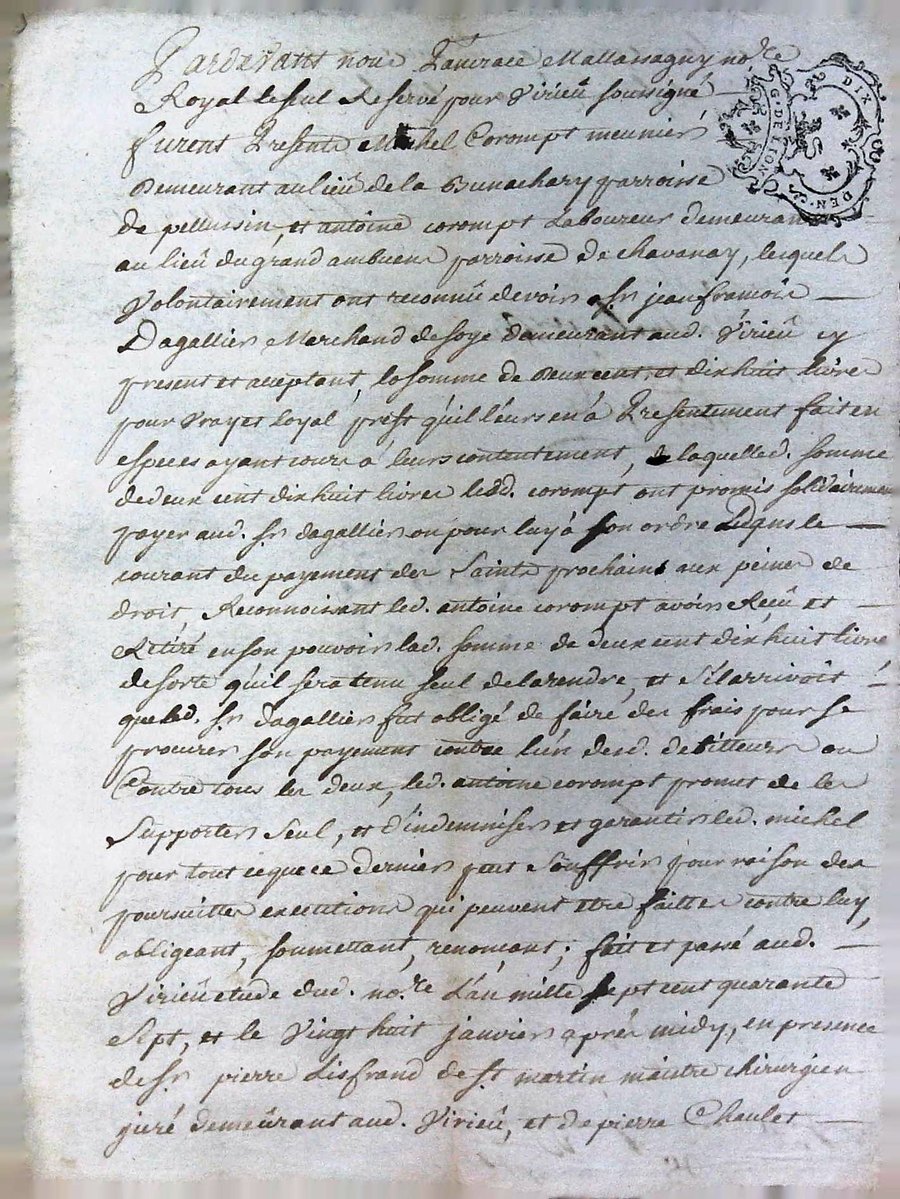 Pardevant nous Tancrace Mallassagny no.re
Royal le seul Reservé pour Virieû soussigné
furent Presents Michel Corompt meunier
Demeurant au lieû de la Bunachary parroisse
de pellussin, et antoine corompt Laboureur demeurant
au lieû du grand ambuens parroisse de chavanay, lesquels
Volontairement ont reconnû devoir a sr. jean francois
Dagallier Marchand de soye demeurant aud. Virieû cy
present et aceptant, la somme de Deux cent et dix huit livres
pour vray et loyal prest qu'il léurs en à Presentement fait en
especes ayant cours á leurs contentement, de laquelle d. somme
de deux cent dix huit livres lesd. corompt ont promis solidairement
payer aud. sr. dagallier ou pour luy à son ordre Dans le
courant du payement des Saints prochains aux peines de
droit, Reconnoissant led. antoine corompt avoir Reçû et
Retiré en son pouvoir lad. somme de deux cent dix huit livre
de sorte qu'il sera tenu seul de la rendre, et s'il arrivoit
que led. sr. dagallier fut obligé de fairé des frais pour se
procurer son payement contre l'un desd. debitteurs ou
Contre tous les deux, led. antoine corompt promet de les
Supporter Seul, et d'indemniser et garantir led. michel
pour tout ce que ce dernier peut Souffrir pour raison des
poursuittes executions qui peuvent etre faittes contre luy,
obligeant, soumettant, renonçant; fait et passé aud.
Virieû etude dud. no.re L'an mille sept cent quarante
Sept, et le Vingt huit janvier aprés midy, en presence
de sr. pierre Lisfrand de st. martin maistre chirurgien
juré demeûrant aud. Virieû, et de pierre Chaulet
G. DE LION
DIX
DEN.RS